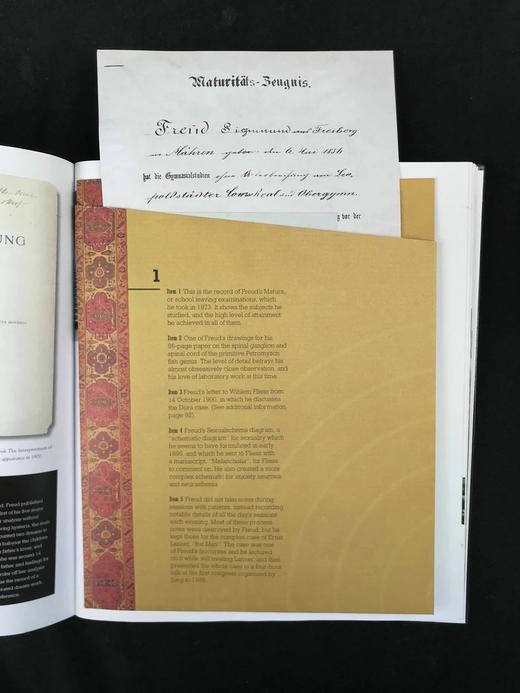 Maturitäts-Zeugnis.
Freud Sigmund aus Freiberg
in Mähren, geboren den 6. Mai 1856
hat die Gymnasialstudien
poldstädter Communal Obergymn.
g vor der
UNG
1
Item 1 This is the record of Freud's Matura,
or school leaving examinations, which
he took in 1873. It shows the subjects he
studied, and the high level of attainment
he achieved in all of them.
Item 2 One of Freud's drawings for his
86-page paper on the spinal ganglion and
spinal cord of the primitive Petromyzon
fish genus. The level of detail betrays his
almost obsessively close observation, and
his love of laboratory work at this time.
Item 3 Freud's letter to Wilhlem Fliess from
14 October 1900, in which he discusses
the Dora case. (See additional information,
page 92).
Item 4 Freud's Sexualschema diagram, a
"schematic diagram" for sexuality which
he seems to have formulated in early
1895, and which he sent to Fliess with
a manuscript, "Melancholia", for Fliess
to comment on. He also created a more
complex schematic for anxiety neurosis
and neurasthenia.
Item 5 Freud did not take notes during
sessions with patients, instead recording
notable details of all the day's sessions
each evening. Most of these process
notes were destroyed by Freud, but he
kept those for the complex case of Ernst
Lanzer, "Rat Man". The case was one
of Freud's favourites and he lectured
on it while still treating Lanzer, and then
presented the whole case in a four-hour
talk at the first congress organised by
Jung in 1908.
The Interpretation of
appearance in 1900.
d. Freud published
first of his five major
r analysis without
ring hysteria, the main
ounted two dreams to
father's lover, and
he was around 14
father and feelings for
roke off her analysis
se the record of a
treated dream work,
ference.